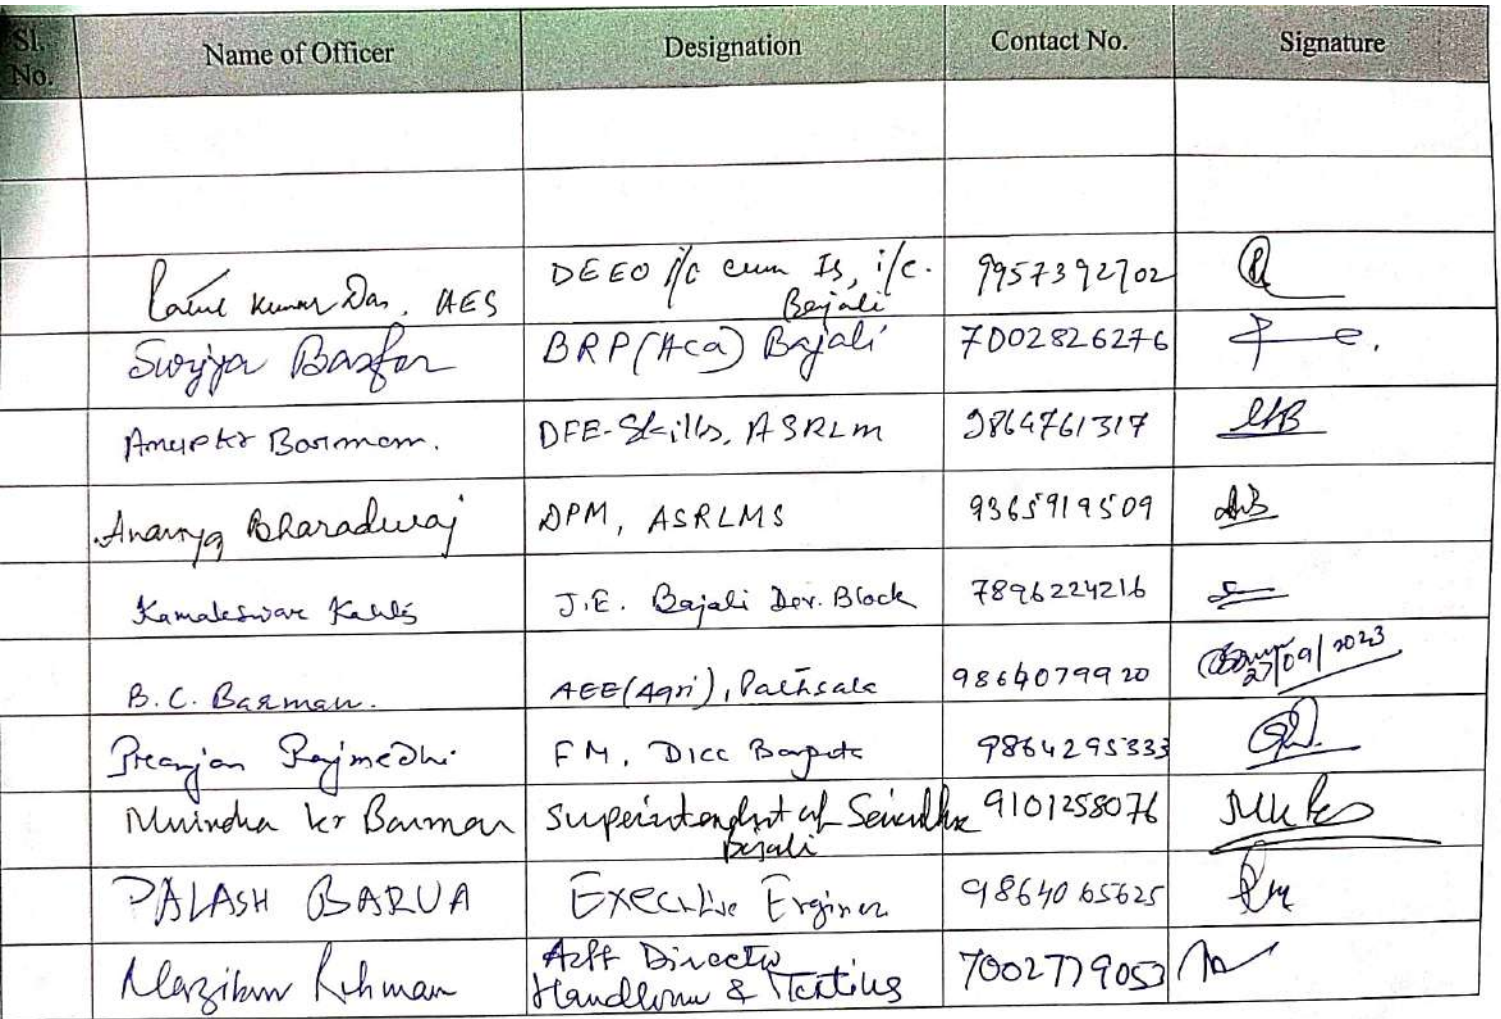 Sl. No. Name of Officer Designation Contact No. Signature
Kumar Das, AES DEEO i/c cum IS, i/c. Bajali 9957392702
Surjya Basfor BRP(Aca) Bajali 7002826276
Anup kr Barman. DFE-Skills, ASRLM 9864761317
Ananya Bharadwaj DPM, ASRLMS 9365919509 AB
Kamaleswar J.E. Bajali Dev. Block 7896224216
B.C. Barman. AEE(Agri), Pathsala 9864079920 27/09/2023
Rajmedhi FM, DICC Barpeta 9864295333
kr Barman Superintendent of Bajali 9101258076
PALASH BARUA Executive Engineer 9864065625
Rehman Asstt Director Handloom & Textiles 7002779053